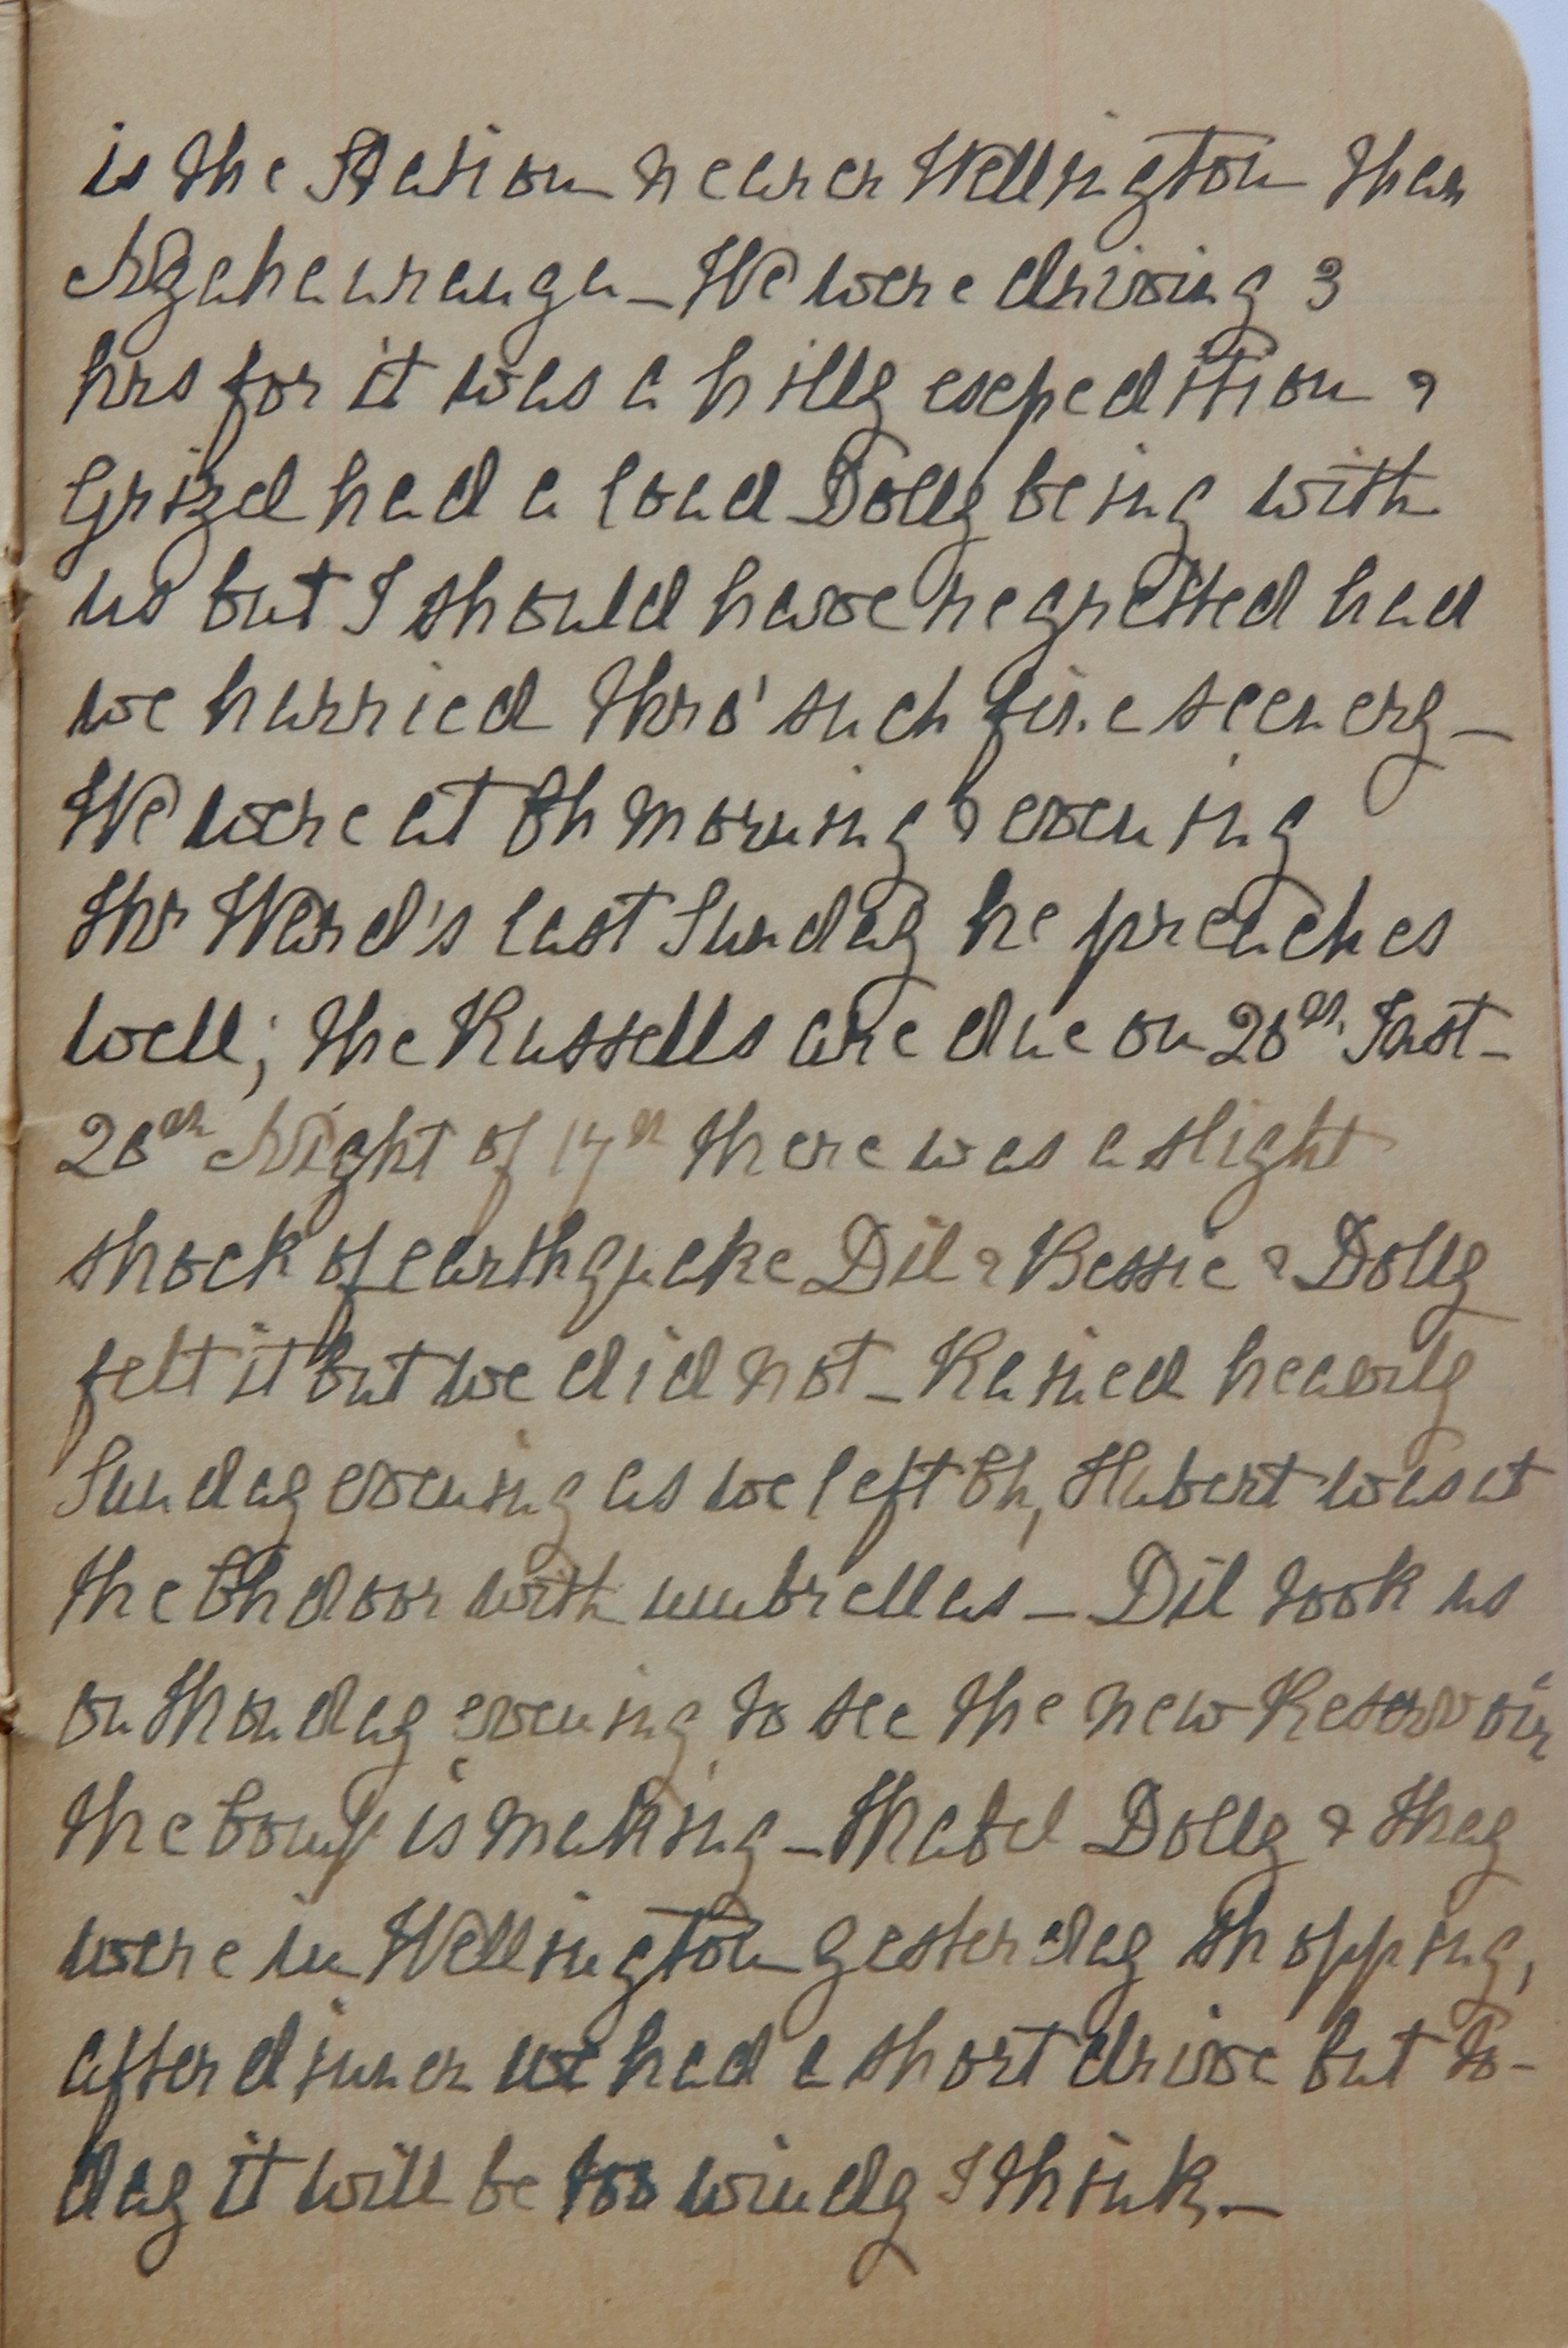 is the Station nearer Wellington than
Ngahauranga — We were driving 3
hrs for it was a hilly expedition &
Grizel had a load Dolly being with
us but I should have regretted had
we hurried thro' such fine scenery —
We were at Ch morning & evening
Mr Ward's last Sunday he preaches
well; the Russells are due on 28th Inst —
20th Night of 17th there was a slight
shock of earthquake Dil & Bessie & Dolly
felt it but we did not — Rained heavily
Sunday evening as we left Ch, Hubert was at
the Ch door with umbrellas — Dil took us
on Monday evening to see the new Reservoir
the Comy is making — Mabel Dolly & May
were in Wellington yesterday shopping,
after dinner we had a short drive but to-
day it will be too windy I think —